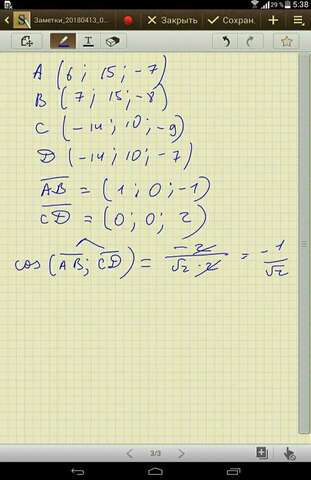 29 % 5:38
Заметки_20180413_0... Закрыть Сохран.
A (6; 15; -7)
B (7; 15; -8)
C (-14; 10; -9)
D (-14; 10; -7)
AB = (1; 0; -1)
CD = (0; 0; 2)
cos(AB; CD) = -2/√2·2 = -1/√2
3/3